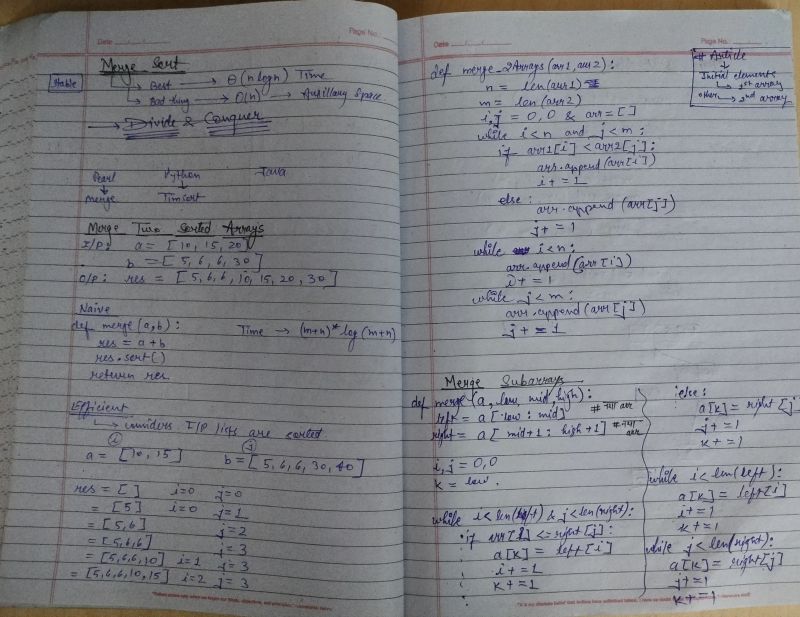 Date
Page No.
Merge Sort
Stable
Best → θ(n logn) Time
Bad thing → O(n) → Auxillary Space
→ Divide & Conquer
Pearl Python Java
↓ ↓
merge Timsort
Merge Two Sorted Arrays
I/P: a = [10, 15, 20]
b = [5, 6, 6, 30]
O/P: res = [5, 6, 6, 10, 15, 20, 30]
Naive
def merge(a,b): Time → (m+n)*log(m+n)
res = a+b
res.sort()
return res
Efficient
→ considers I/P lists are sorted
i j
a = [10, 15] b = [5, 6, 6, 30, 40]
res = [] i=0 j=0
= [5] i=0 j=1
= [5,6] j=2
= [5,6,6] j=3
= [5,6,6,10] i=1 j=3
= [5,6,6,10,15] i=2 j=3
Date
Page No.
# Article
↓
Initial elements
→ 1st array
other → 2nd array
def merge_2Arrays(arr1, arr2):
n = len(arr1)
m = len(arr2)
i,j = 0,0 & arr=[]
while i<n and j<m:
if arr1[i] < arr2[j]:
arr.append(arr[i])
i+=1
else:
arr.append(arr[j])
j+=1
while i<n:
arr.append(arr[i])
i+=1
while j<m:
arr.append(arr[j])
j+=1
Merge Subarrays
def merge(a, low, mid, high):
left = a[low : mid] # नया arr
right = a[mid+1 : high+1] # नया arr
i, j = 0,0
k = low
while i<len(left) & j<len(right):
if arr[i] <= right[j]:
a[k] = left[i]
i+=1
k+=1
else:
a[k] = right[j
j+=1
k+=1
while i<len(left):
a[k] = left[i]
i+=1
k+=1
while j<len(right):
a[k] = right[j]
j+=1
k+=1